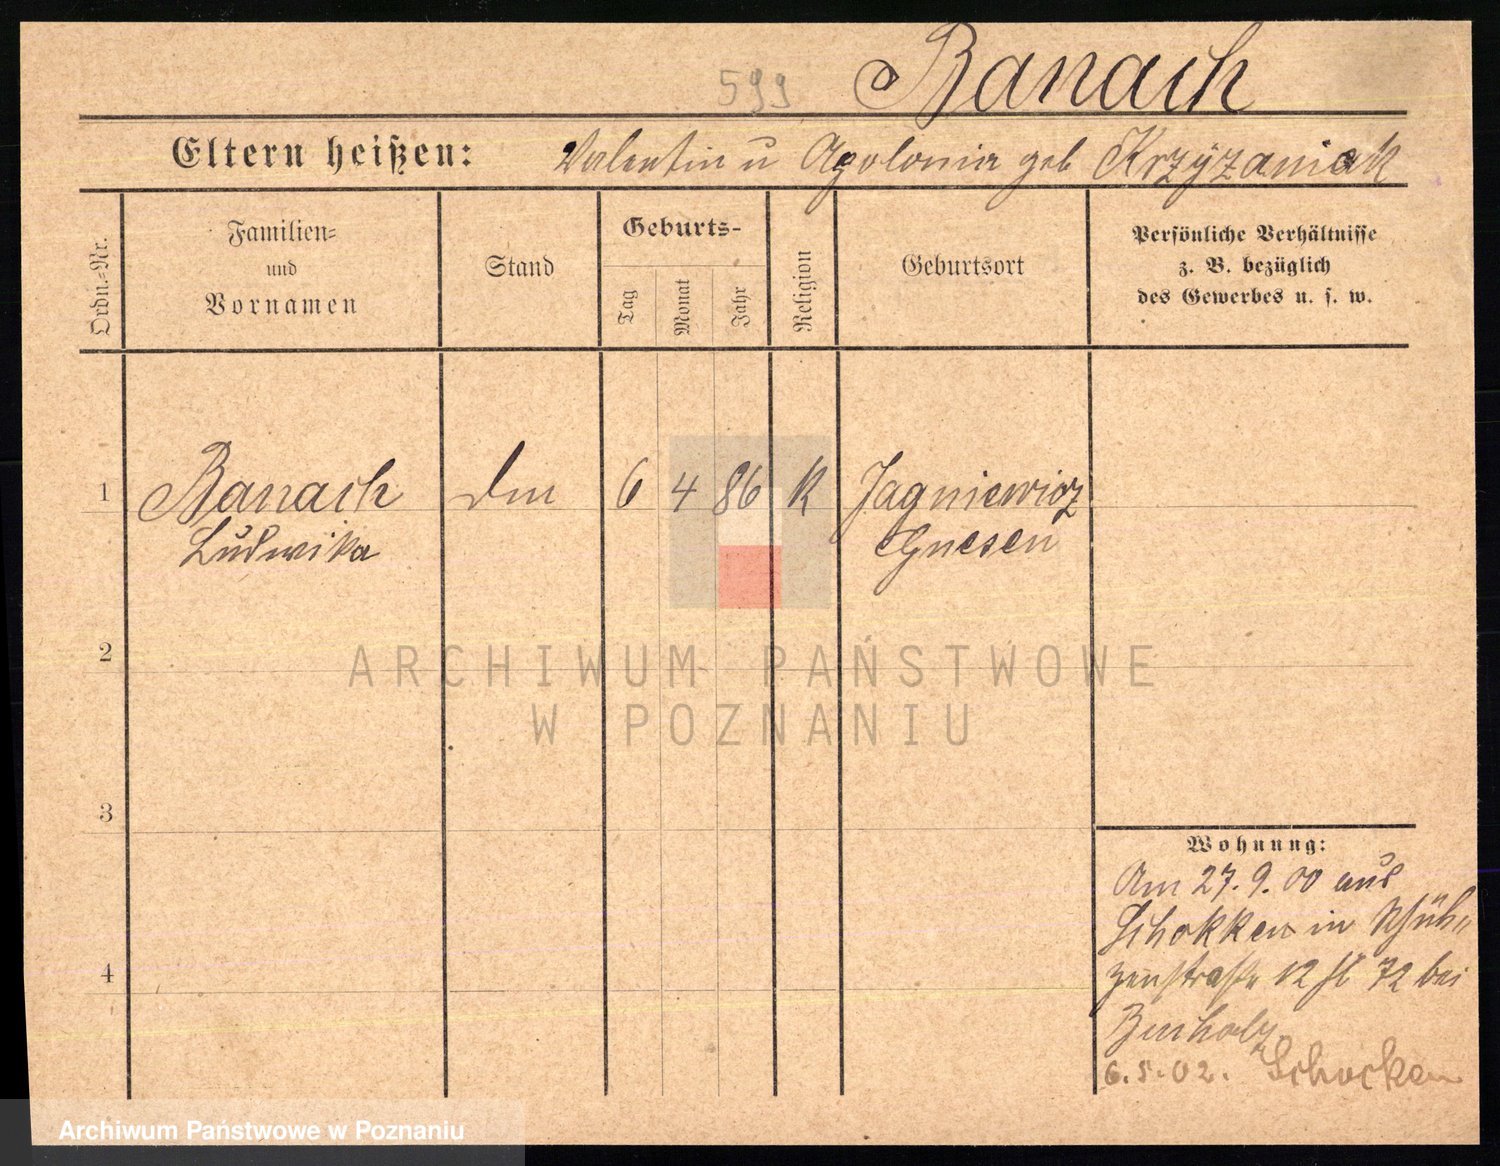 599 Banach
Eltern heißen: Valentin u Apolonia geb Krzÿzaniak
Ordn.-Nr.
Familien-
und
Vornamen
Stand
Geburts-
Tag
Monat
Jahr
Religion
Geburtsort
Persönliche Verhältnisse
z. B. bezüglich
des Gewerbes u. s. w.
1 Banach 6 4 86 K Jagniewicz
Ludwika Gnesen
2
3
4
Wohnung:
Am 27.9.00 aus
Schokken in Schüt-
zenstraße 12 72 bei
6.5.02. Schocken
ARCHIWUM PAŃSTWOWE
W POZNANIU
Archiwum Państwowe w Poznaniu